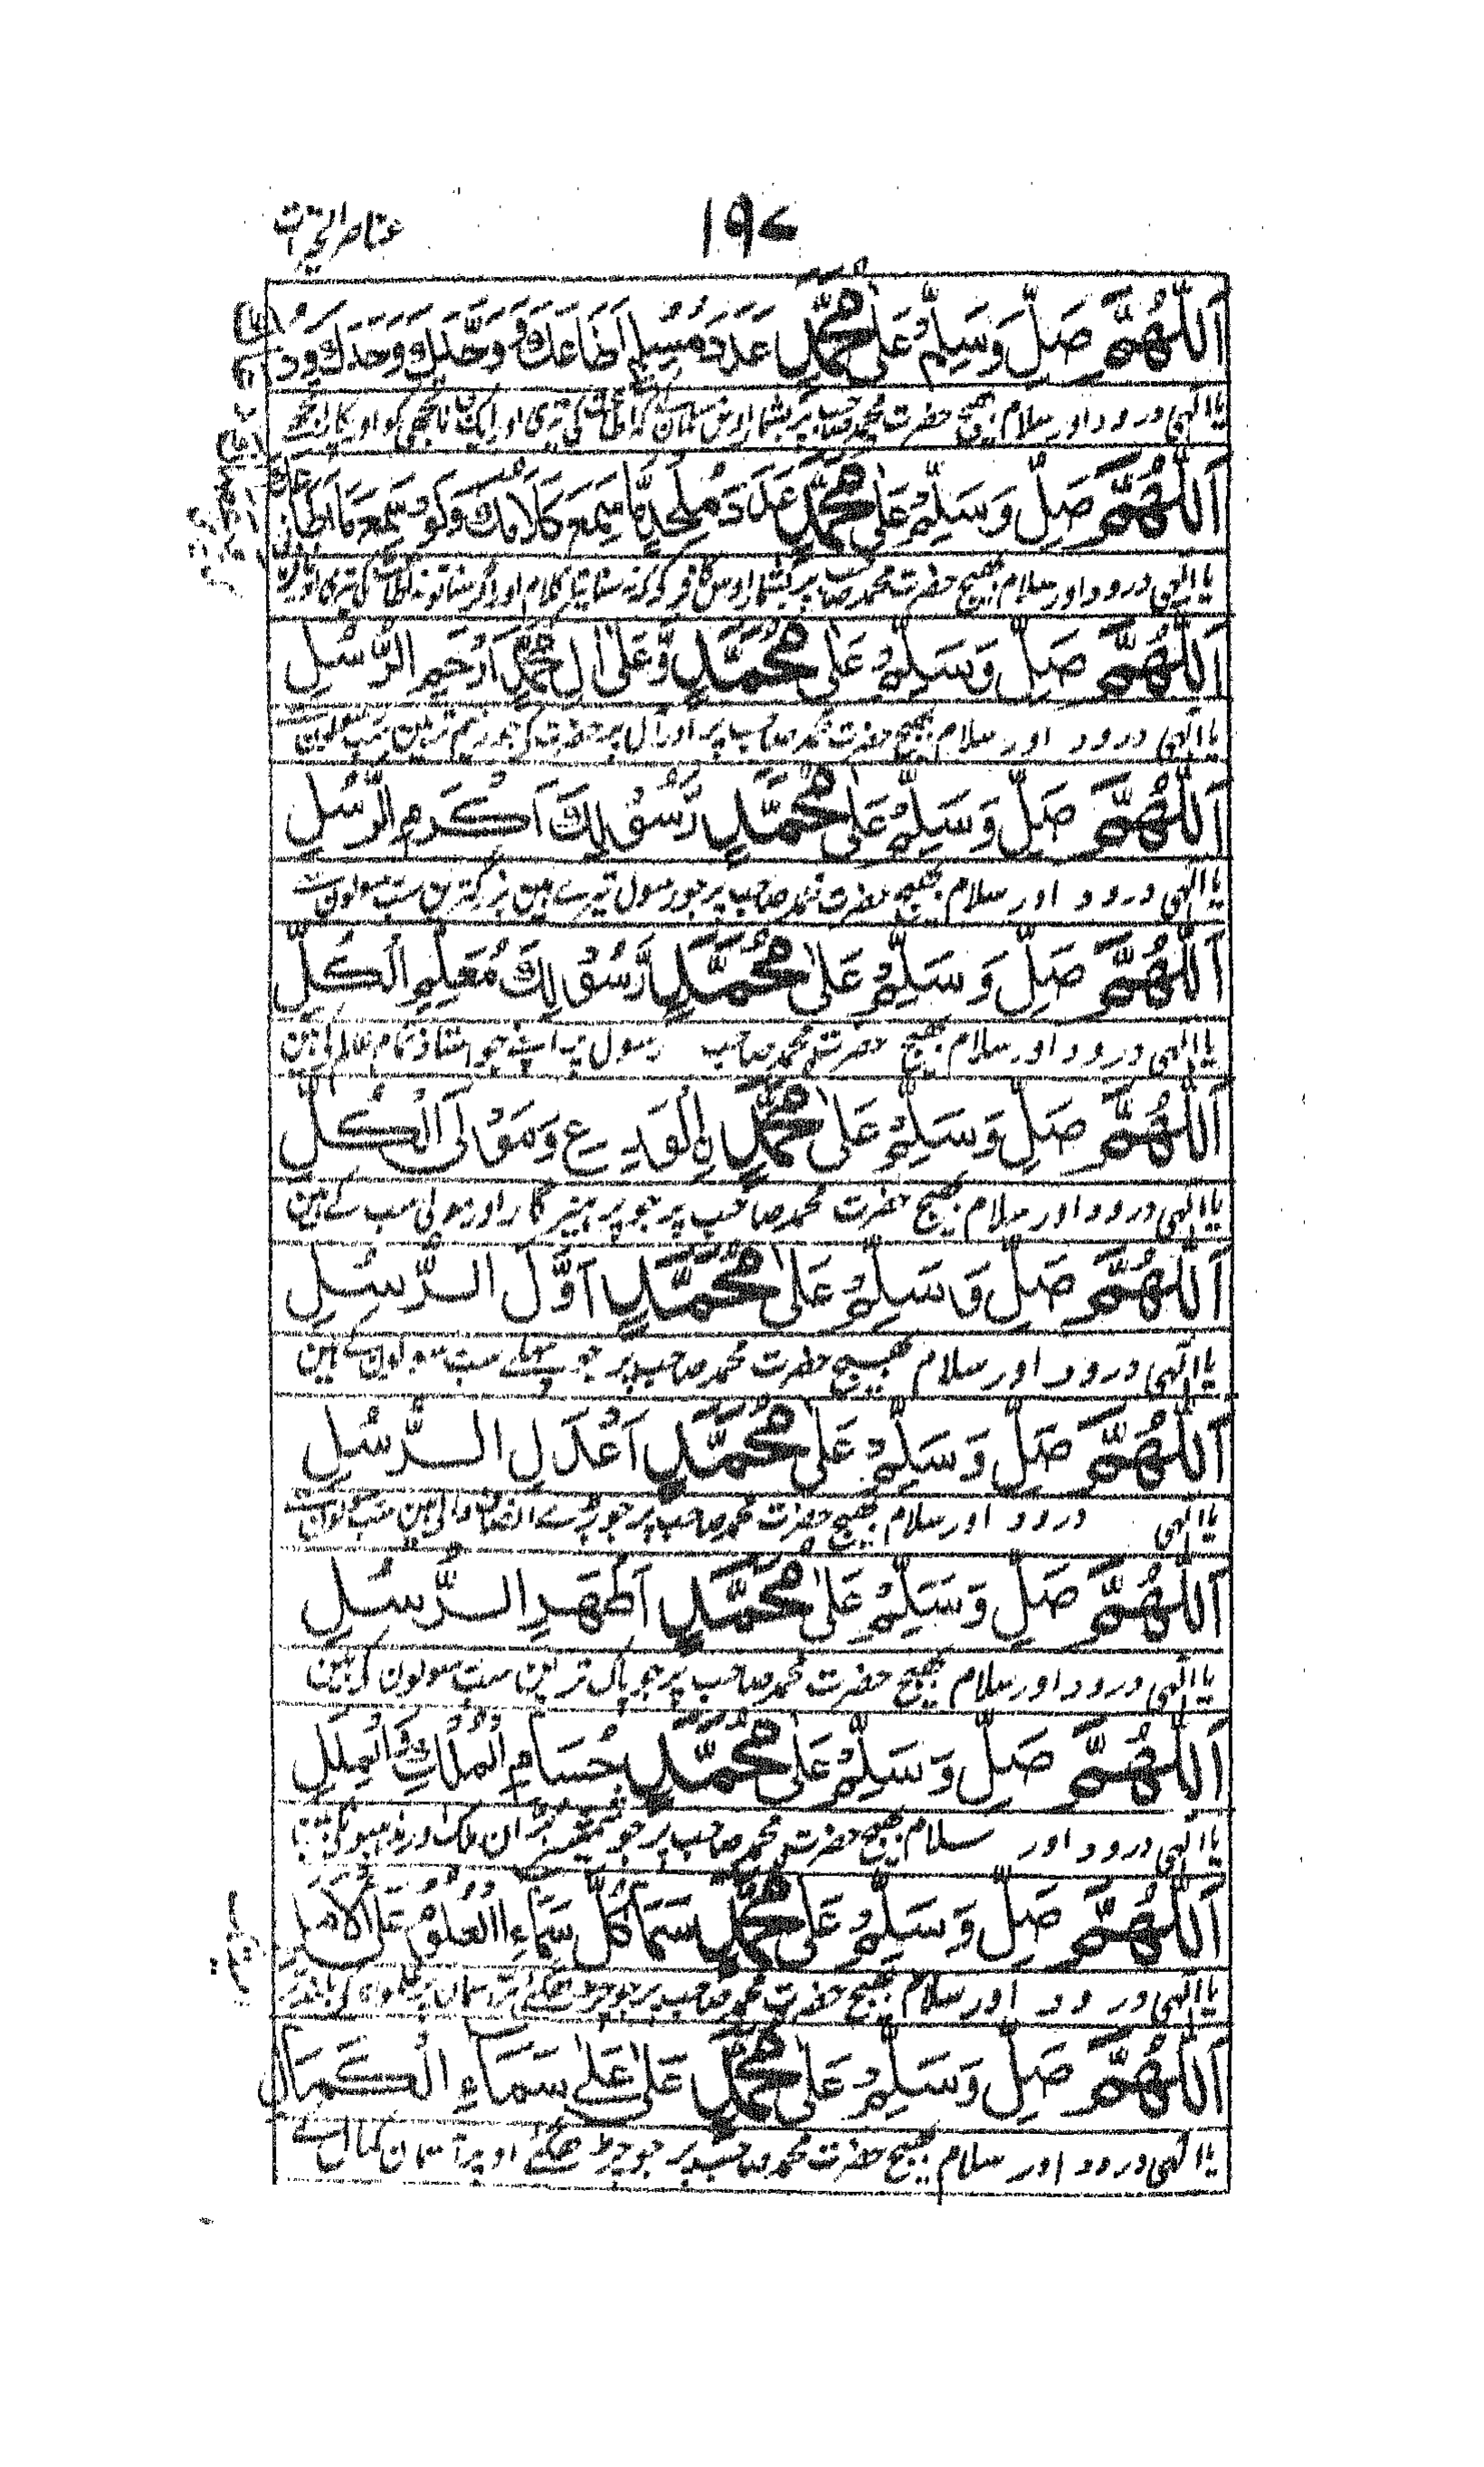 ۱۹۷
اَللّٰهُمَّ صَلِّ وَسَلِّمْ عَلٰى مُحَمَّدٍ عَدَدَ مُسْلِمٍ اَطَاعَكَ وَ وَحَّدَكَ
یا الٰہی درود اور سلام بھیج حضرت محمد صاحب پر بشمار اوس مسلمان کے
اَللّٰهُمَّ صَلِّ وَسَلِّمْ عَلٰى مُحَمَّدٍ عَدَدَ مُلْحِدٍ مَّا سَمِعَ كَلَامَكَ وَلَوْ سَمِعَ مَا اَطَاعَكَ
یا الٰہی درود اور سلام بھیج حضرت محمد صاحب پر بشمار اوس کافر کی کہ نہ سنا تیرا کلام اور اگر سنا تو نہ
اَللّٰهُمَّ صَلِّ وَسَلِّمْ عَلٰى مُحَمَّدٍ وَّعَلٰى اٰلِ مُحَمَّدٍ اَرْحَمِ الرُّسُلِ
یا الٰہی درود اور سلام بھیج حضرت محمد صاحب پر اور آل پر حضرت کی
اَللّٰهُمَّ صَلِّ وَسَلِّمْ عَلٰى مُحَمَّدٍ رَّسُوْلِكَ اَكْرَمِ الرُّسُلِ
یا الٰہی درود اور سلام بھیج حضرت محمد صاحب پر جو رسول تیرے ہین بزرگترین سب رسولونکے
اَللّٰهُمَّ صَلِّ وَسَلِّمْ عَلٰى مُحَمَّدٍ رَّسُوْلِكَ مُعَلِّمِ الْكُلِّ
یا الٰہی درود اور سلام بھیج حضرت محمد صاحب رسول پر اپنے جو استاذ تمام عالم کی ہین
اَللّٰهُمَّ صَلِّ وَسَلِّمْ عَلٰى مُحَمَّدِ ۨالْوَرِعِ وَمَوْلَى الْكُلِّ
یا الٰہی درود اور سلام بھیج حضرت محمد صاحب پر جو پرہیزگار اور مولیٰ سب کے ہین
اَللّٰهُمَّ صَلِّ وَسَلِّمْ عَلٰى مُحَمَّدٍ اَوَّلِ الرُّسُلِ
یا الٰہی درود اور سلام بھیج حضرت محمد صاحب پر جو پہلے سب رسولون کے ہین
اَللّٰهُمَّ صَلِّ وَسَلِّمْ عَلٰى مُحَمَّدٍ اَعْدَلِ الرُّسُلِ
یا الٰہی درود اور سلام بھیج حضرت محمد صاحب پر جو بڑے انصاف والی ہین سب
اَللّٰهُمَّ صَلِّ وَسَلِّمْ عَلٰى مُحَمَّدٍ اَطْهَرِ الرُّسُلِ
یا الٰہی درود اور سلام بھیج حضرت محمد صاحب پر جو پاک ترین سب رسولون کی ہین
اَللّٰهُمَّ صَلِّ وَسَلِّمْ عَلٰى مُحَمَّدٍ حُسَامِ الْمُلْكِ وَالْمِلَلِ
یا الٰہی درود اور سلام بھیج حضرت محمد صاحب پر جو شمشیر بران ملک اور
اَللّٰهُمَّ صَلِّ وَسَلِّمْ عَلٰى مُحَمَّدٍ سَمَا كُلَّ سَمَاءِ الْعُلُوْمِ
یا الٰہی درود اور سلام بھیج حضرت محمد صاحب پر جو چڑھ گئے
اَللّٰهُمَّ صَلِّ وَسَلِّمْ عَلٰى مُحَمَّدٍ عَلٰى عَلٰى سَمَاءِ الْكَمَالِ
یا الٰہی درود اور سلام بھیج حضرت محمد صاحب پر جو چڑھ گئے اوپر آسمان کمال کے